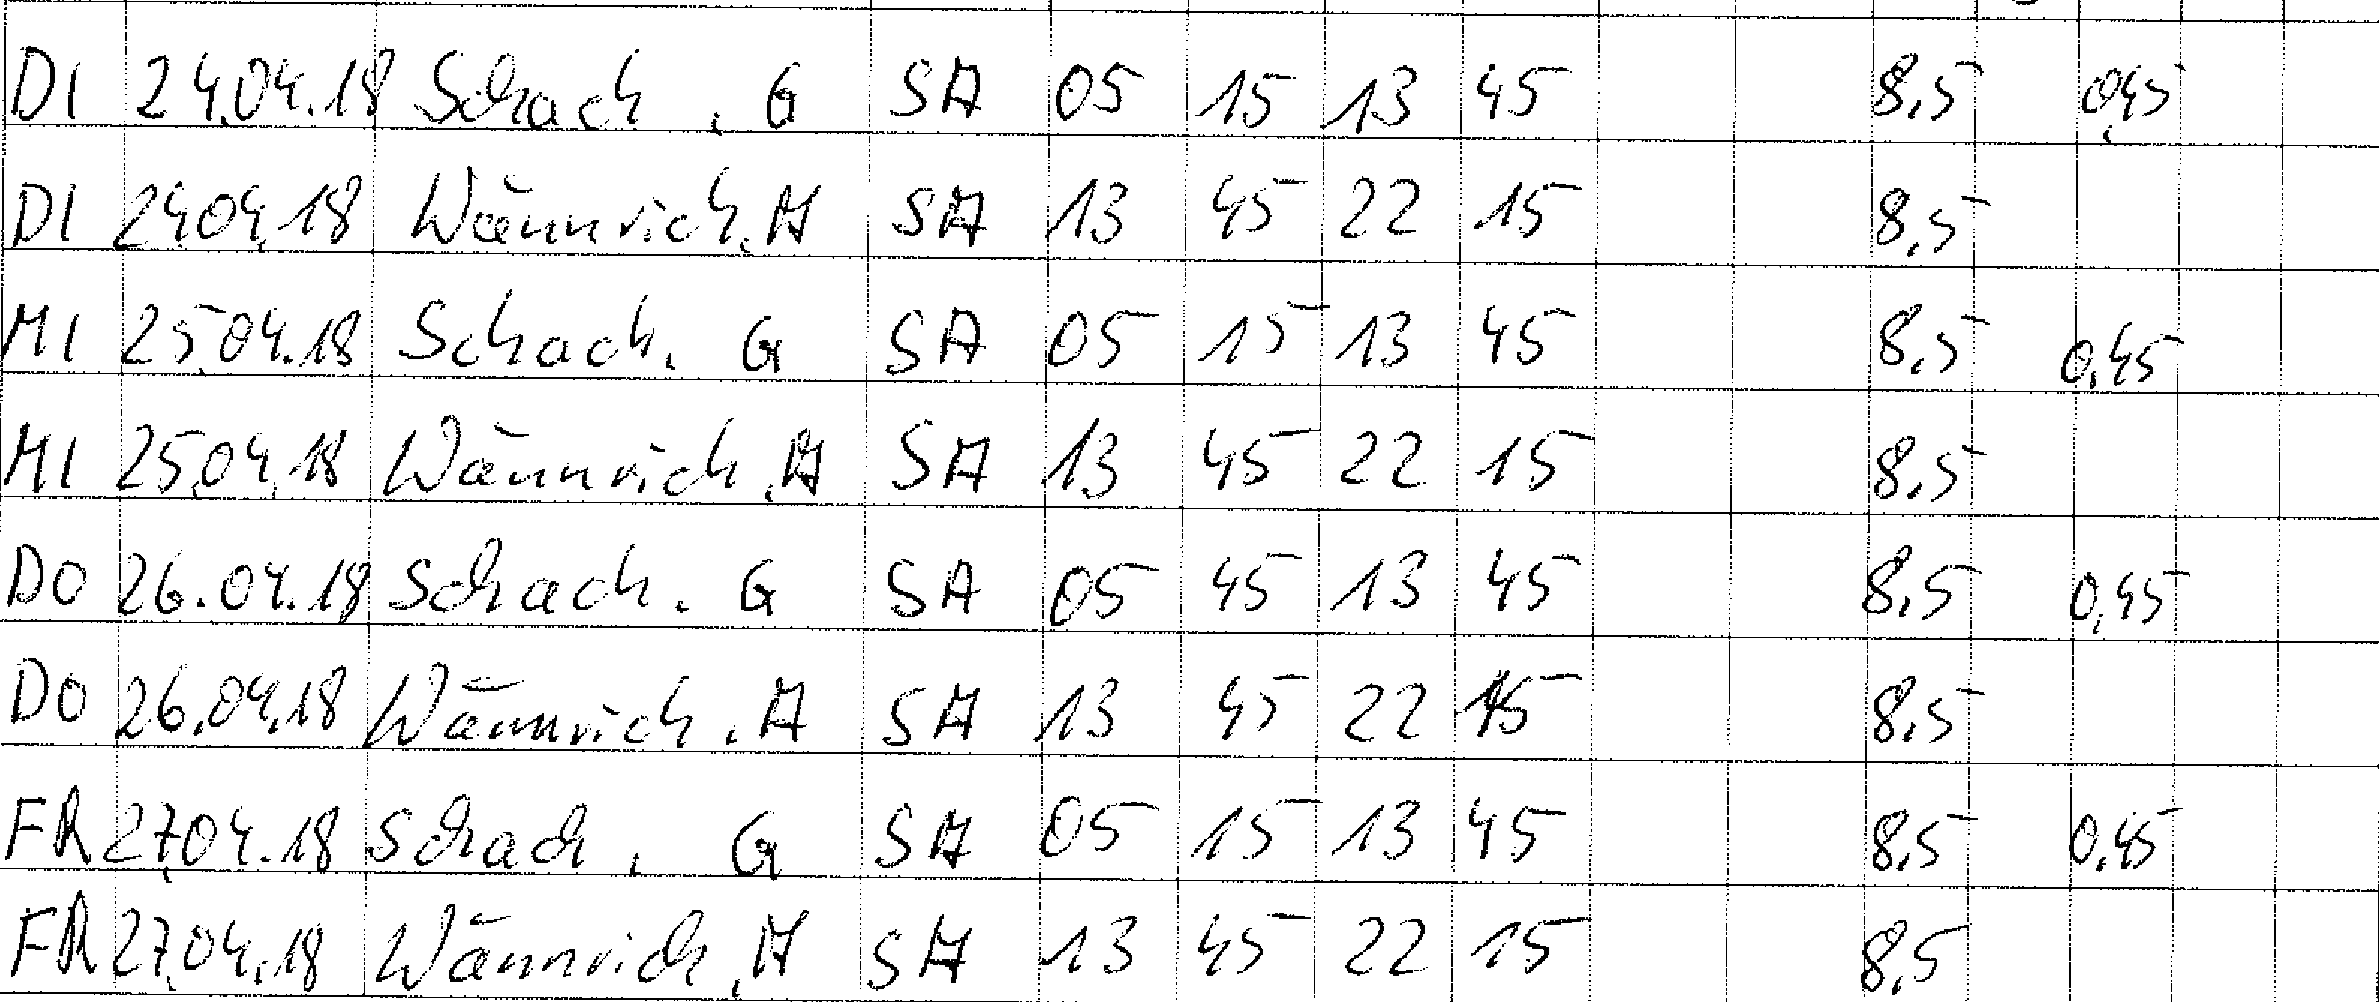 DI 24.04.18 Schach, G SA 05 15 13 45 8,5 0,45
DI 24.04.18 Wännrich, A SA 13 45 22 15 8,5
MI 25.04.18 Schach, G SA 05 15 13 45 8,5 0,45
MI 25.04.18 Wännrich, A SA 13 45 22 15 8,5
DO 26.04.18 Schach, G SA 05 45 13 45 8,5 0,45
DO 26.04.18 Wännrich, A SA 13 45 22 15 8,5
FR 27.04.18 Schach, G SA 05 15 13 45 8,5 0,45
FR 27.04.18 Wännrich, A SA 13 45 22 15 8,5